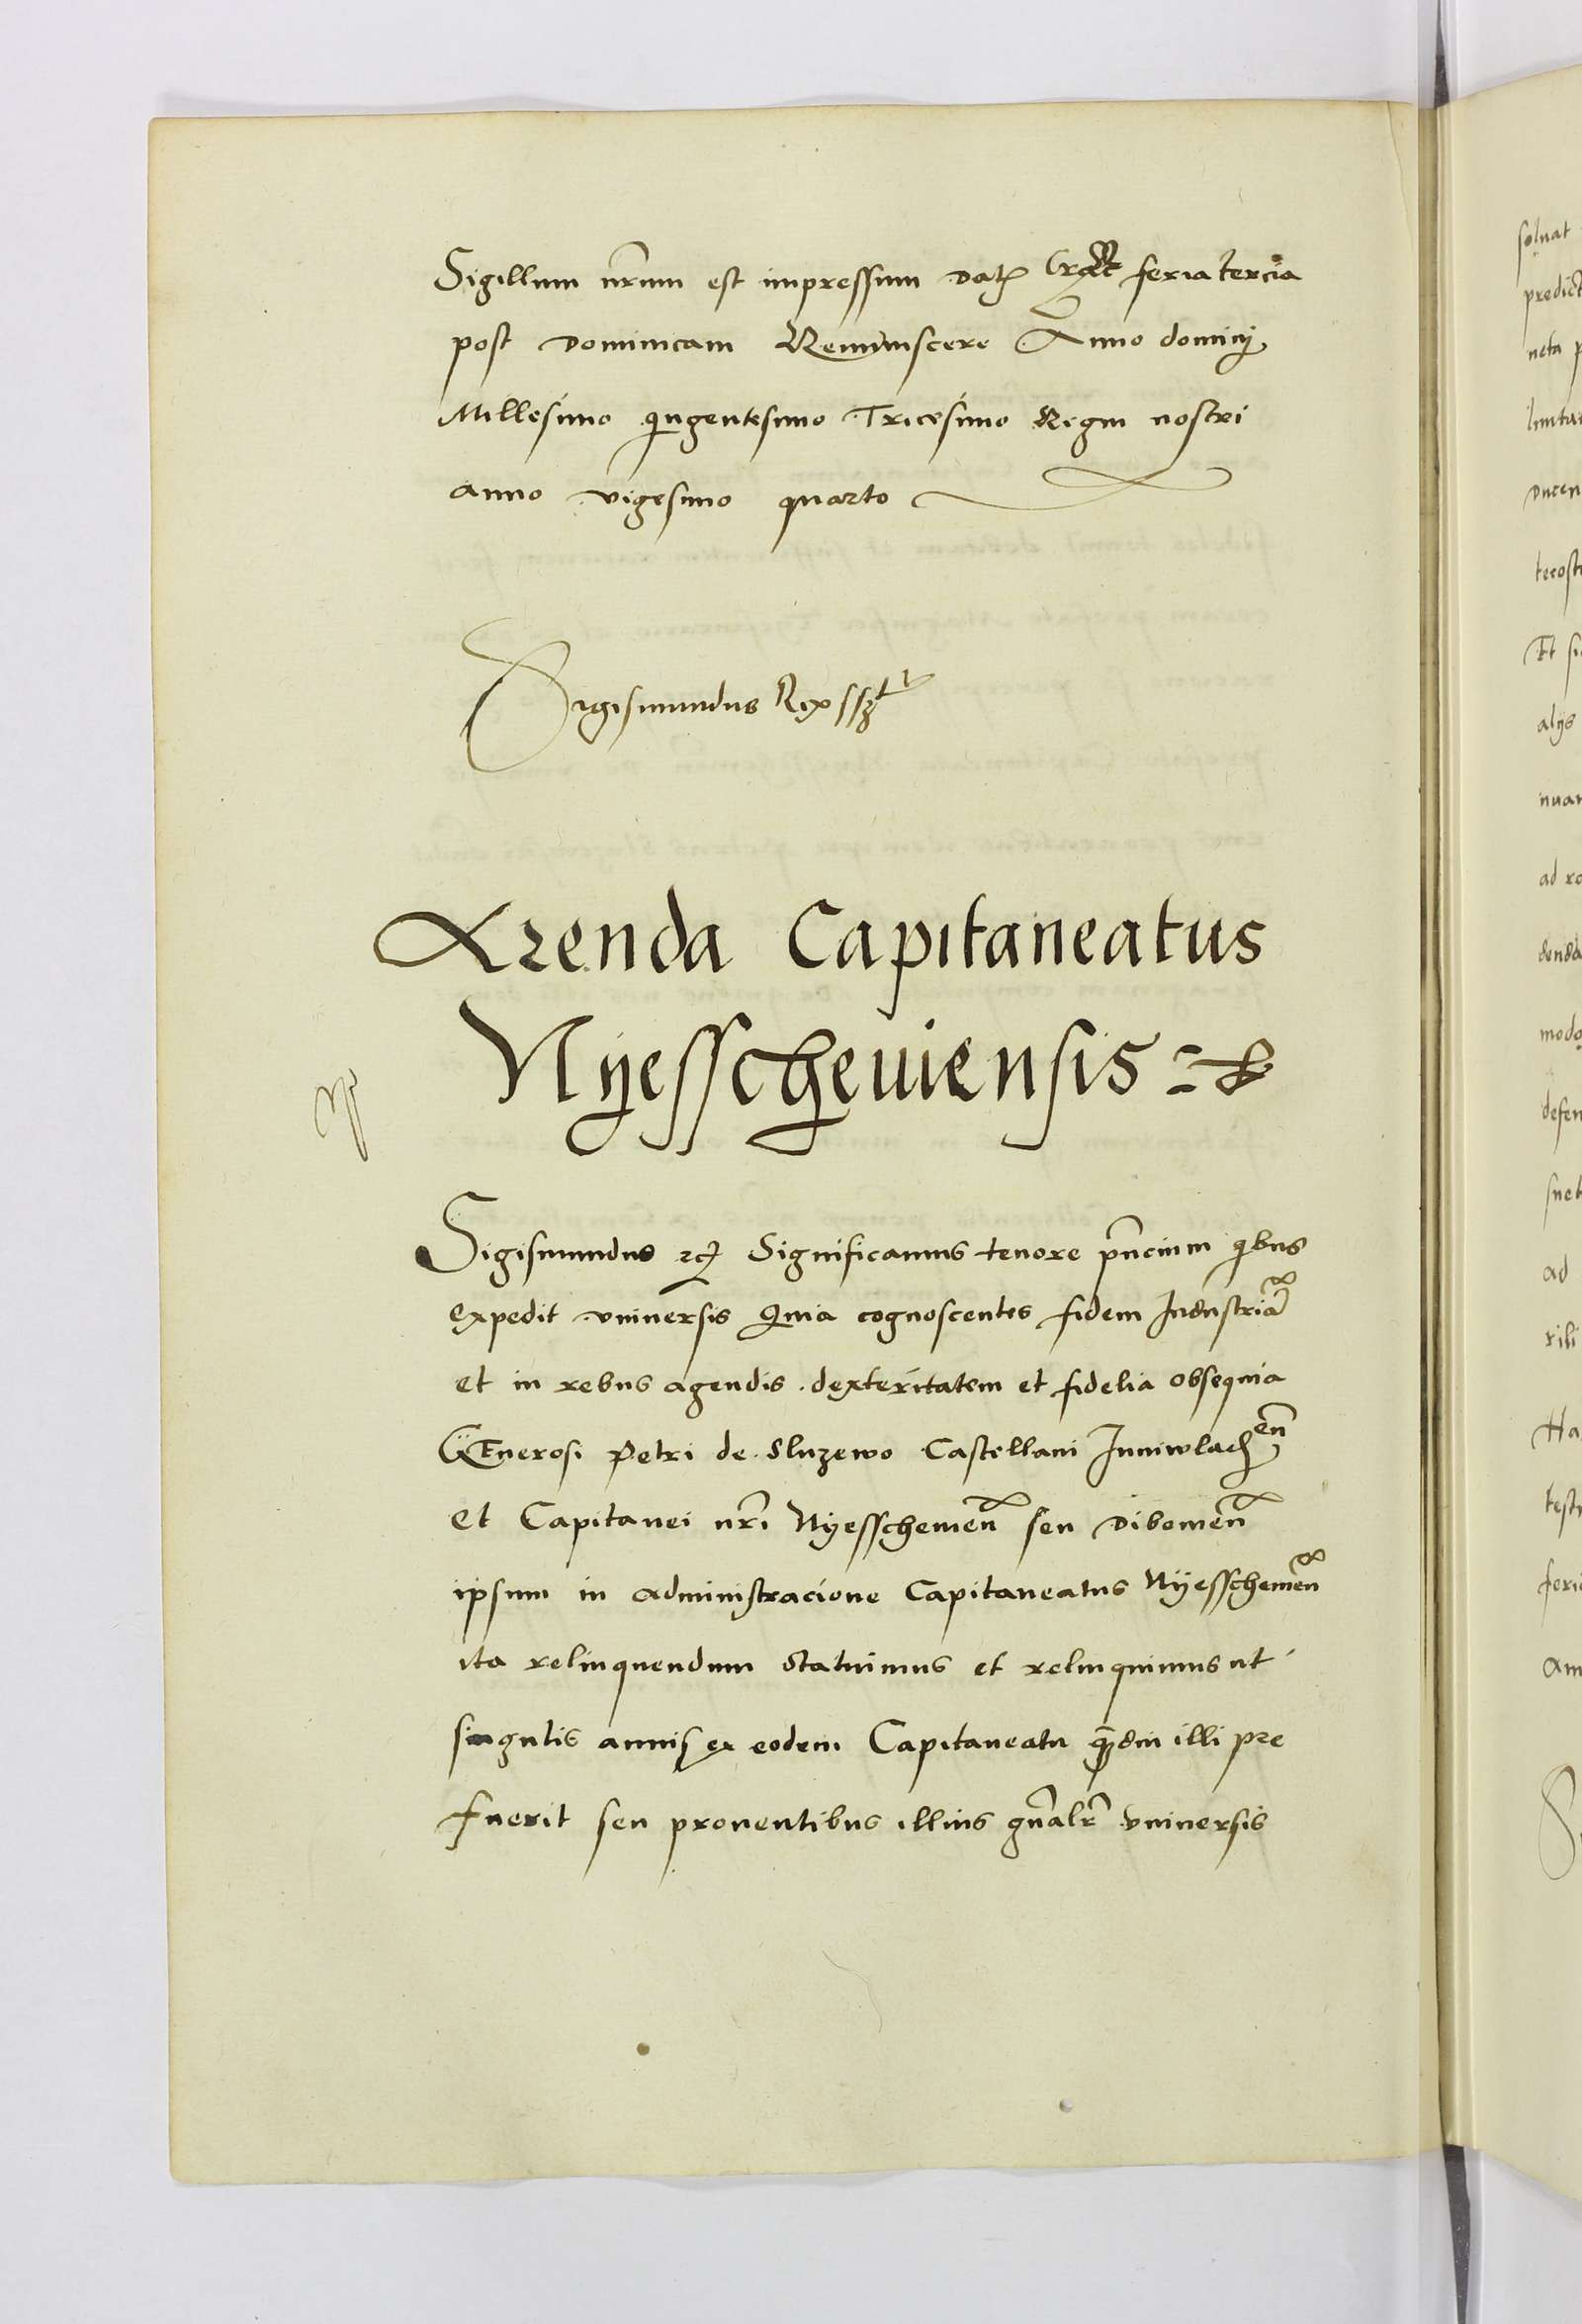 Sigillum nrum est impressum Dat Crac feria tercia
post Dominicam Reminiscere Anno dominj
Millesimo quingentesimo Tricesimo Regni nostri
anno vigesimo quarto
Sigismundus Rex sszt
Arenda Capitaneatus
Nyesscheuiensis
Sigismundus etc Significamus tenore pncium qbus
expedit vniuersis Quia cognoscentes fidem Industria
et in rebus agendis dexteritatem et fidelia obsequia
GEnerosi Petri de Sluzewo Castellani Iuniwladien
et Capitanei nri Nyesscheuien seu Dibouien
ipsum in administracione Capitaneatus Nyesscheuien
ita relinquendum statuimus et relinquimus ut
singulis annis ex eodem Capitaneatu qdiu illi pre
fuerit seu prouentibus illius gnalr vniuersis
soluat
predict
neta p
limitat
Ducen
Et si
alijs
nuar
ad ra
denda
modo
defen
ad
rili
Ha
testi
feri
am